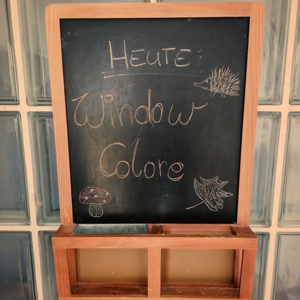 HEUTE:
Window
Colore